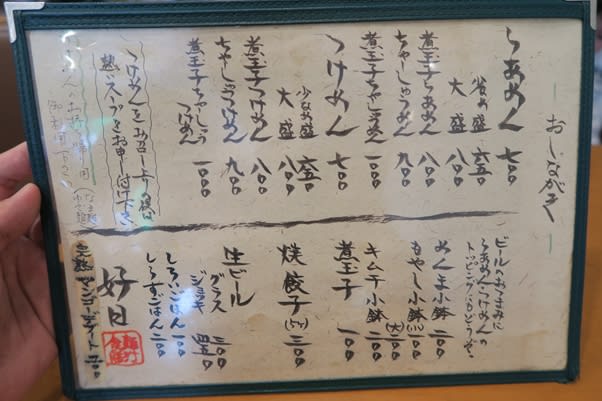 おしながき
らあめん 七〇〇
少なめ盛 六五〇
大盛 八〇〇
煮玉子らあめん 八〇〇
ちゃしゅうめん 九〇〇
煮玉子ちゃしゅうめん 一〇〇〇
つけめん 七〇〇
少なめ盛 六五〇
大盛 八〇〇
煮玉子つけめん 八〇〇
ちゃしゅうつけめん 九〇〇
煮玉子ちゃしゅうつけめん 一〇〇〇
つけめんをお召し上り後は
熱いスープをお申し付け下さい
ビールのおつまみに
らあめん・つけめんの
トッピングにもどうぞ。
めんま小鉢 一〇〇
もやし小鉢(小)一〇〇
(大)二〇〇
キムチ小鉢 一〇〇
煮玉子 一〇〇
焼餃子(5ケ) 三〇〇
生ビール
グラス 三〇〇
ジョッキ 四五〇
しろいごはん 一〇〇
しらすごはん 二〇〇
好日
完熟マンゴーデザート 二〇〇